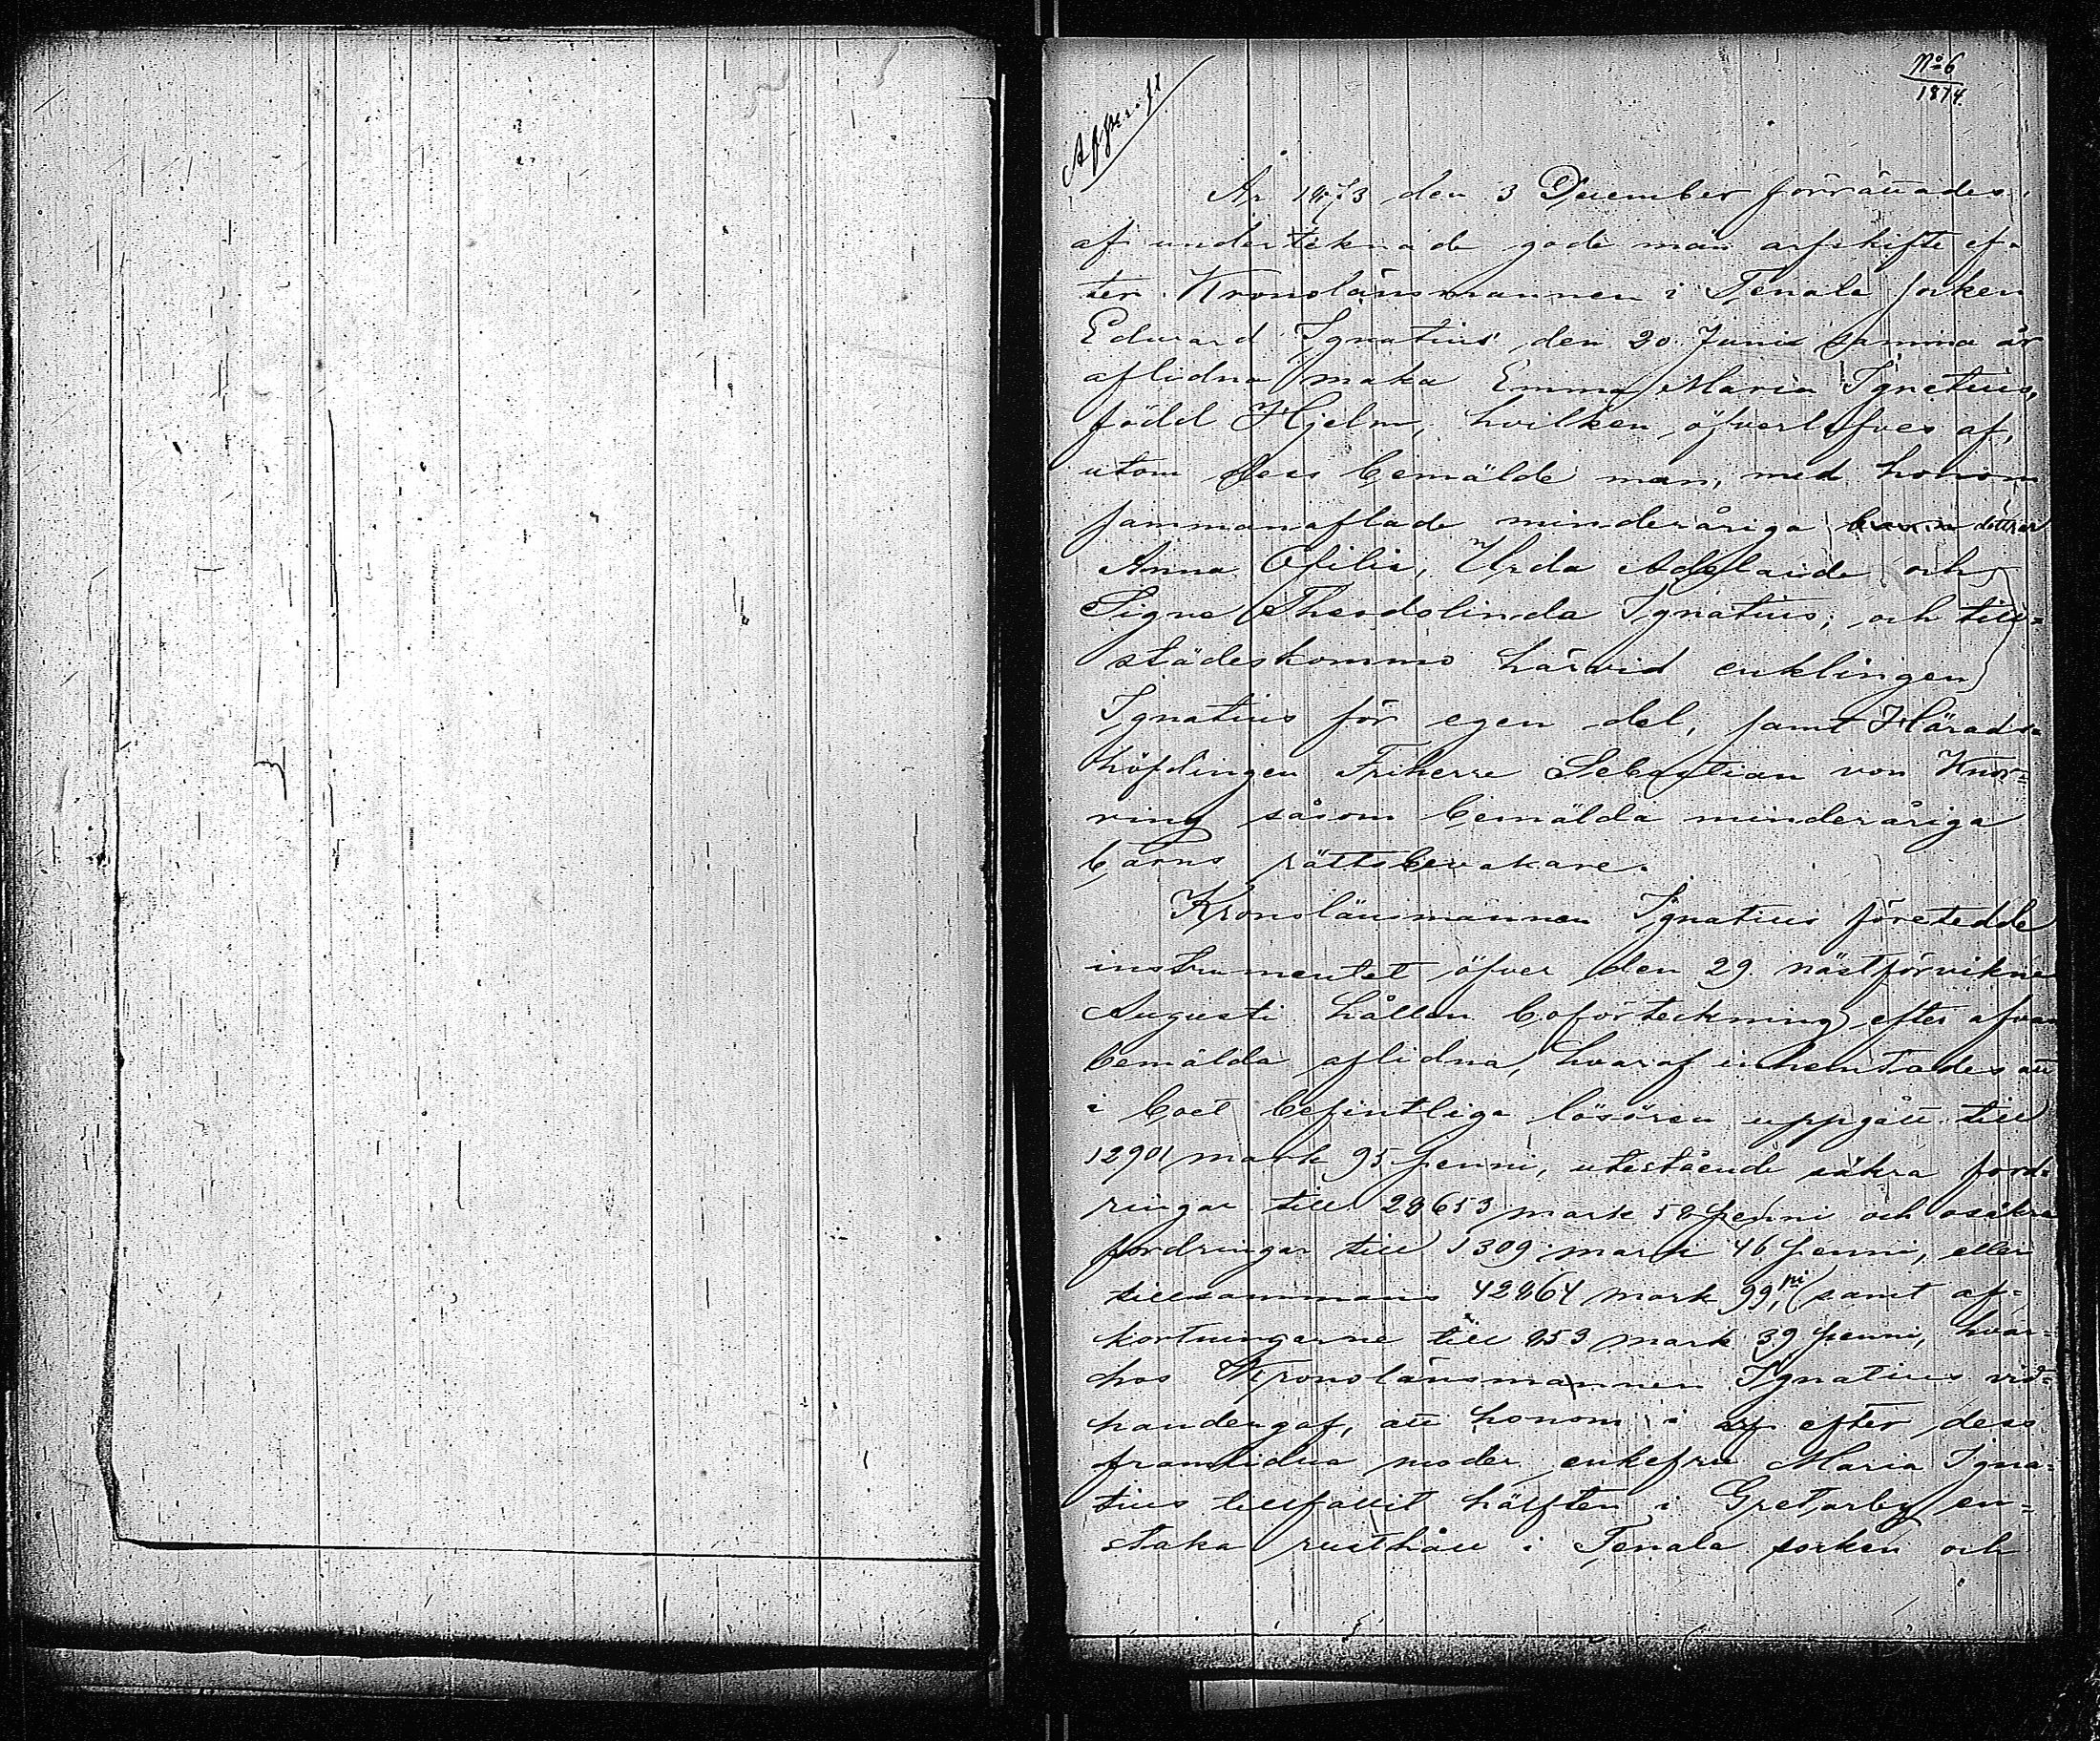 No 6
1874.
Afskrift
År 1873 den 3 December förrättades
af undertecknade gode män arfskifte ef-
ter Kronolänsmannen i Tenala socken
Edvard Ignatius' den 30 Junii samma år
aflidna maka Emma Maria Ignatius,
född Hjelm, hvilken öfverlefves af,
utom dess bemälde man, med honom
sammanaflade minderåriga barn döttrar
Anna Ofilia, Urda Adelaide och
Signe Theodolinda Ignatius; och till-
städeskommo härvid enklingen
Ignatius för egen del, samt Härads-
höfdingen Friherre Sebastian von Knor-
ring såsom bemälda minderåriga
barns rättsbevakare.
Kronolänsmannen Ignatius företedde
instrumentet öfver den 29 nästförvikne
Augusti hållen boförteckning efter ofvan
bemälda aflidna, hvaraf inhemtades att
i boet befintliga lösören uppgått till
12901 mark 95 penni, utestående säkra ford-
ringar till 28653 mark 58 penni och osäkra
fordringar till 1309 mark 46 penni, eller
tillsammans 42864 mark 99 pi, samt af-
kortningarne till 853 mark 39 penni, hvar-
hos Kronolänsmannen Ignatius vid-
handengaf, att honom i arf efter dess
framlidna moder enkefru Maria Igna-
tius tillfallit hälften i Gretarby en-
staka rusthåll i Tenala socken och